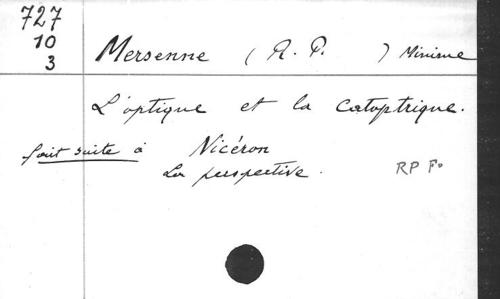 727
10
3
Mersenne (R. P. ) Minime
L'optique et la catoptrique.
fait suite à Nicéron
La perspective.
RP F°